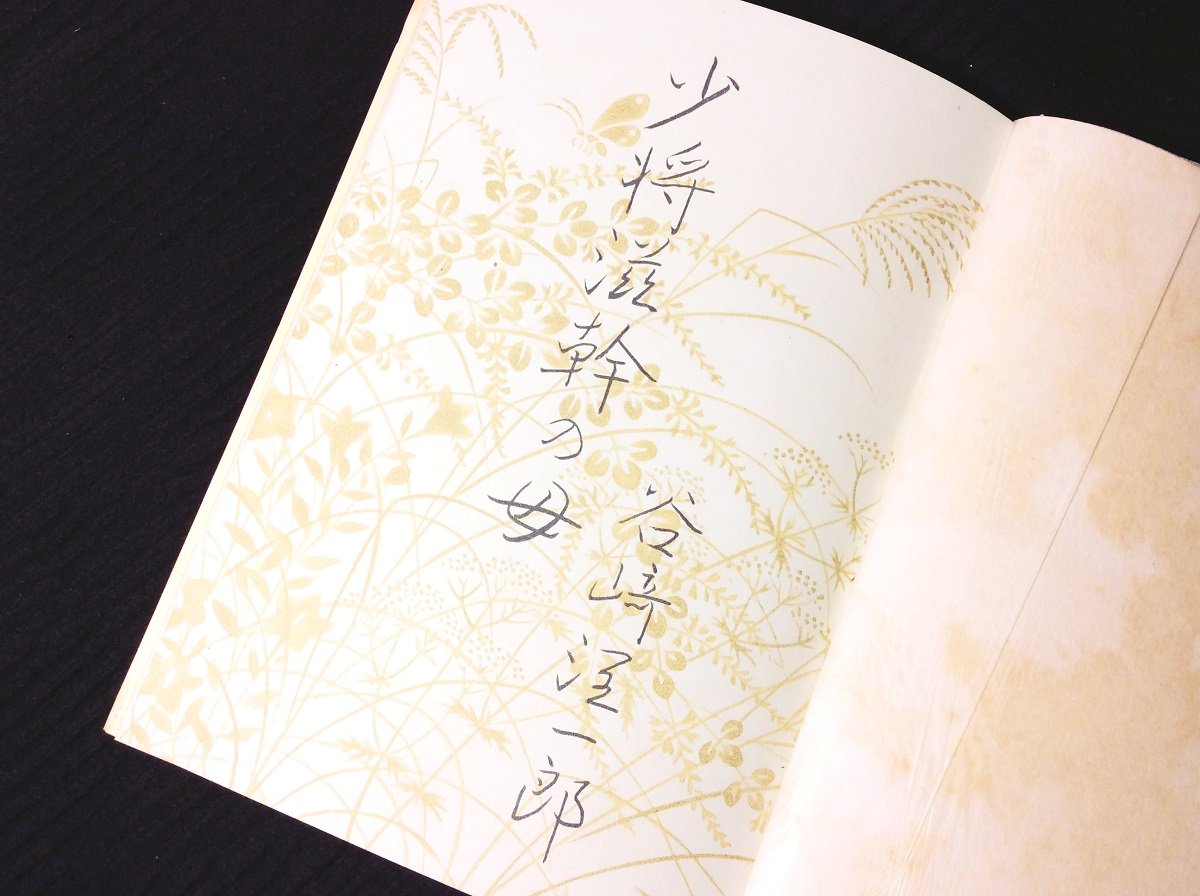 少将滋幹の母
谷崎潤一郎